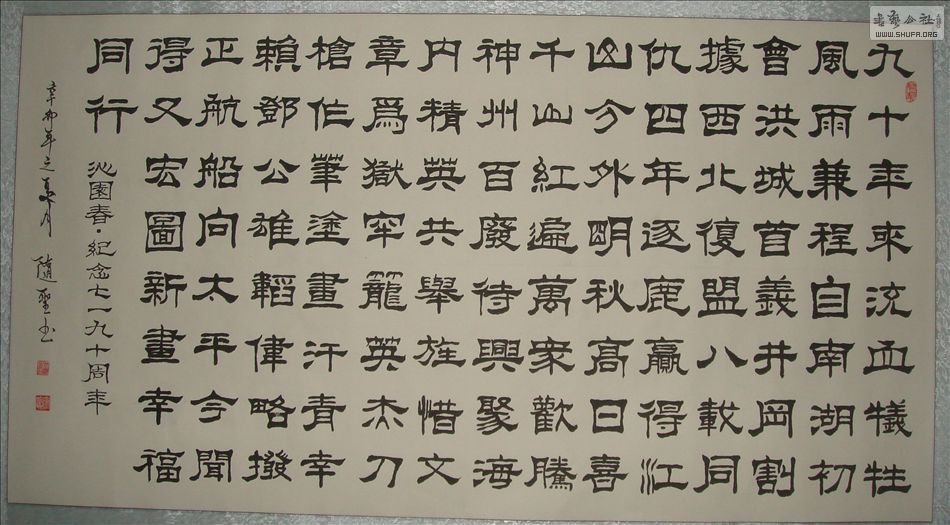 九十年來流血犧牲
風雨兼程自南湖初
會洪城首義井岡割
據西北復盟八載同
仇四年逐鹿贏得江
山分外明秋高日喜
千山紅遍萬衆歡騰
神州百廢待興聚海
内精英共舉旌惜文
章爲獄牢籠英杰刀
槍作筆塗畫汗青幸
賴鄧公雄韜偉略撥
正航船向太平今聞
得又宏圖新畫幸福
同行
沁園春·紀念七一九十周年
辛卯年之夏月 隨聖书
书艺公社
WWW.SHUFA.ORG